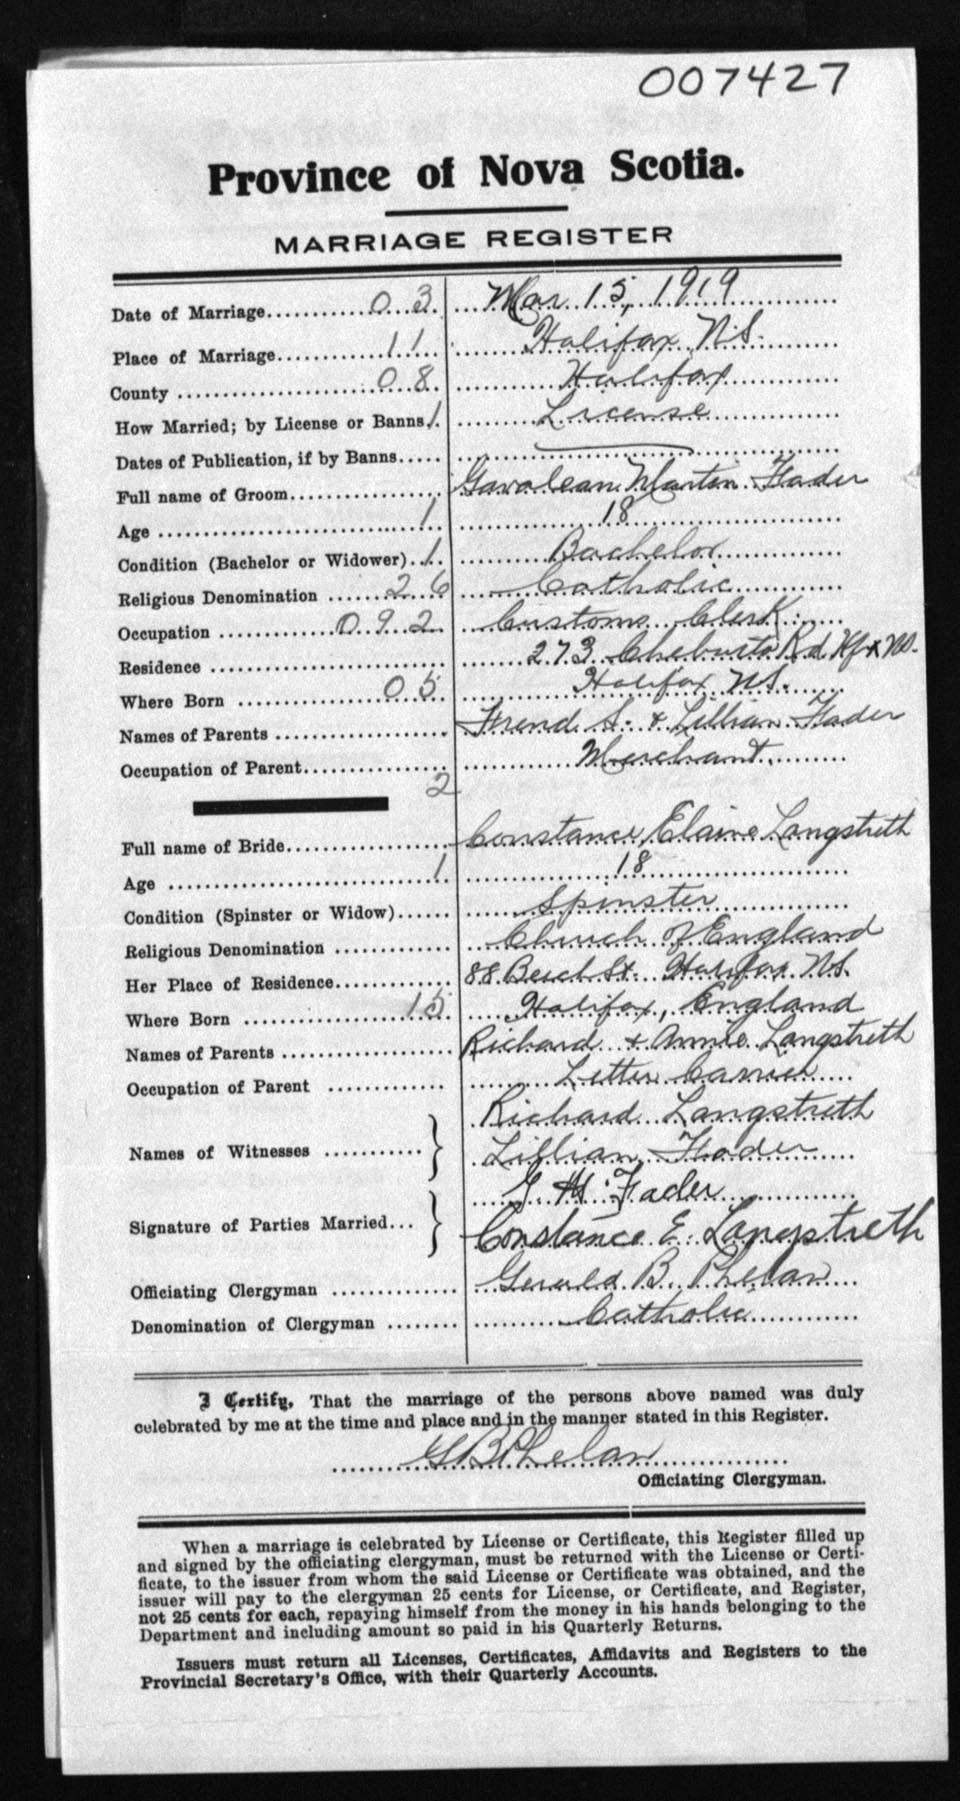 007427
Province of Nova Scotia.
MARRIAGE REGISTER
Date of Marriage............03.. ...Mar 15, 1919
Place of Marriage............11.. Halifax N.S.
County ............08.. Halifax
How Married; by License or Banns.1. License
Dates of Publication, if by Banns.....
Full name of Groom............ Martin Fader
Age ............1 18
Condition (Bachelor or Widower)..1.. Bachelor
Religious Denomination ......26 Catholic
Occupation ............092 Customs Clerk
Residence ............ 273 Chebucto Rd Hfx NS.
Where Born ............05 Halifax NS.
Names of Parents ............ S. & Lillian Fader
Occupation of Parent............ Merchant
2
Full name of Bride............ Constance Elaine Langstreth
Age ............1 18
Condition (Spinster or Widow)...... Spinster
Religious Denomination ............ Church of England
Her Place of Residence............ 88 Beech St. Halifax NS.
Where Born ............15 Halifax, England
Names of Parents ............ Richard & Annie Langstreth
Occupation of Parent ............ Letter Carrier
Names of Witnesses ............ } Richard Langstreth
Lillian Fader
Signature of Parties Married... } G. M. Fader
Constance E. Langstreth
Officiating Clergyman ............ Gerald B. Phelan
Denomination of Clergyman ........ Catholic
I Certify, That the marriage of the persons above named was duly
celebrated by me at the time and place and in the manner stated in this Register.
G B Phelan
Officiating Clergyman.
When a marriage is celebrated by License or Certificate, this Register filled up
and signed by the officiating clergyman, must be returned with the License or Certi-
ficate, to the issuer from whom the said License or Certificate was obtained, and the
issuer will pay to the clergyman 25 cents for License, or Certificate, and Register,
not 25 cents for each, repaying himself from the money in his hands belonging to the
Department and including amount so paid in his Quarterly Returns.
Issuers must return all Licenses, Certificates, Affidavits and Registers to the
Provincial Secretary's Office, with their Quarterly Accounts.